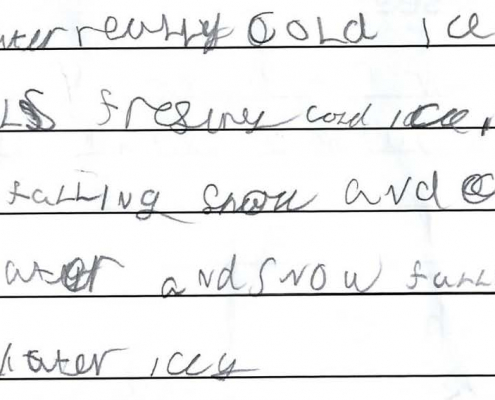 really cold ice
fresiny cold ice,
falling snow and
and snow fall
water icey